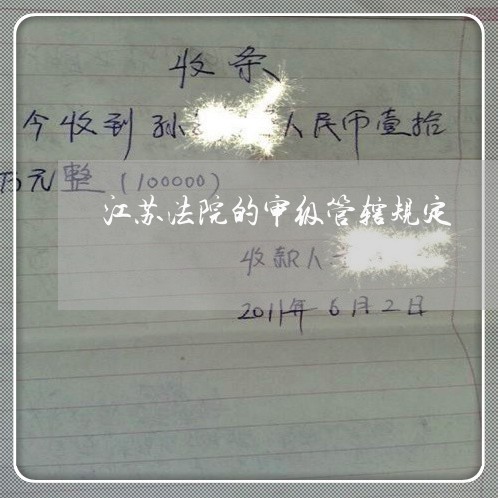 收条
今收到孙 人民币壹拾
万元整(100000)
江苏法院的审级管辖规定
收款人
2011年6月2日